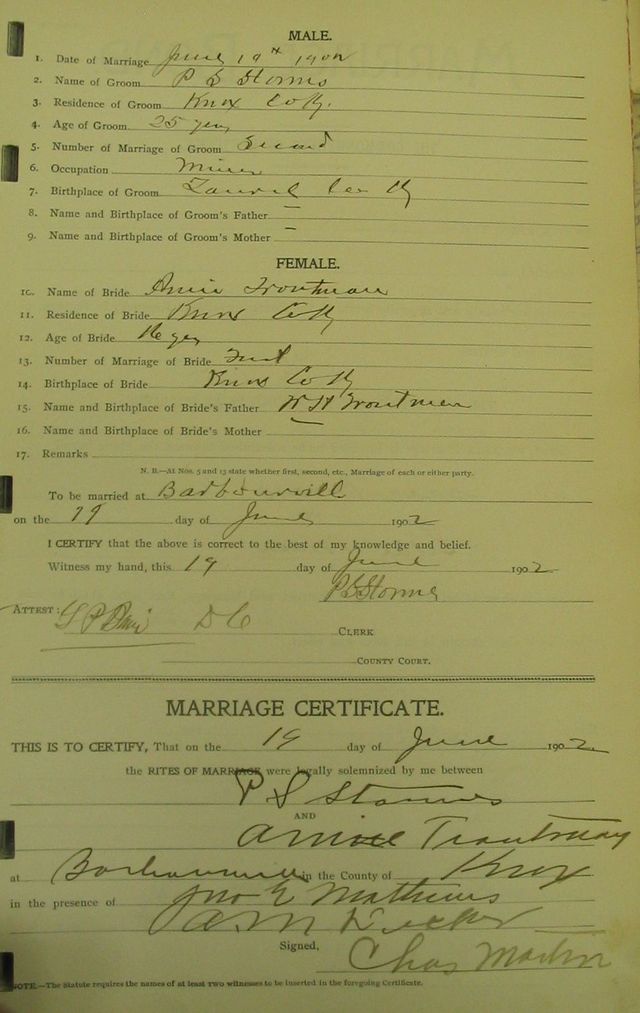 MALE.
1. Date of Marriage June 19th 1902
2. Name of Groom P S Storms
3. Residence of Groom Knox Co Ky.
4. Age of Groom 25 yers
5. Number of Marriage of Groom Second
6. Occupation Miner
7. Birthplace of Groom Laurel Co Ky
8. Name and Birthplace of Groom's Father —
9. Name and Birthplace of Groom's Mother —
FEMALE.
10. Name of Bride Annie Troutman
11. Residence of Bride Knox Co Ky
12. Age of Bride 16 yrs
13. Number of Marriage of Bride First
14. Birthplace of Bride Knox Co Ky
15. Name and Birthplace of Bride's Father W H Troutman
16. Name and Birthplace of Bride's Mother —
17. Remarks
N. B.—At Nos. 5 and 13 state whether first, second, etc., Marriage of each or either party.
To be married at Barbourvill
on the 19 day of June 1902
I CERTIFY that the above is correct to the best of my knowledge and belief.
Witness my hand, this 19 day of June 1902
P S Storms
ATTEST: D C CLERK
COUNTY COURT.
MARRIAGE CERTIFICATE.
THIS IS TO CERTIFY, That on the 19 day of June 1902
the RITES OF MARRIAGE were legally solemnized by me between
P S Storms
AND
Annie Troutman
at Barbourville in the County of Knox
in the presence of Jno E Mathews
A M Decker
Signed, Chas Martin
NOTE.—The Statute requires the names of at least two witnesses to be inserted in the foregoing Certificate.